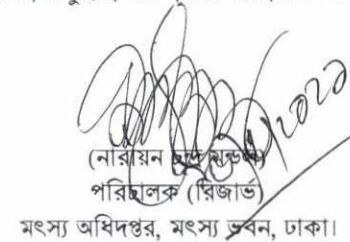 (নারায়ন চন্দ্র মন্ডল)
পরিচালক (রিজার্ভ)
মৎস্য অধিদপ্তর, মৎস্য ভবন, ঢাকা।